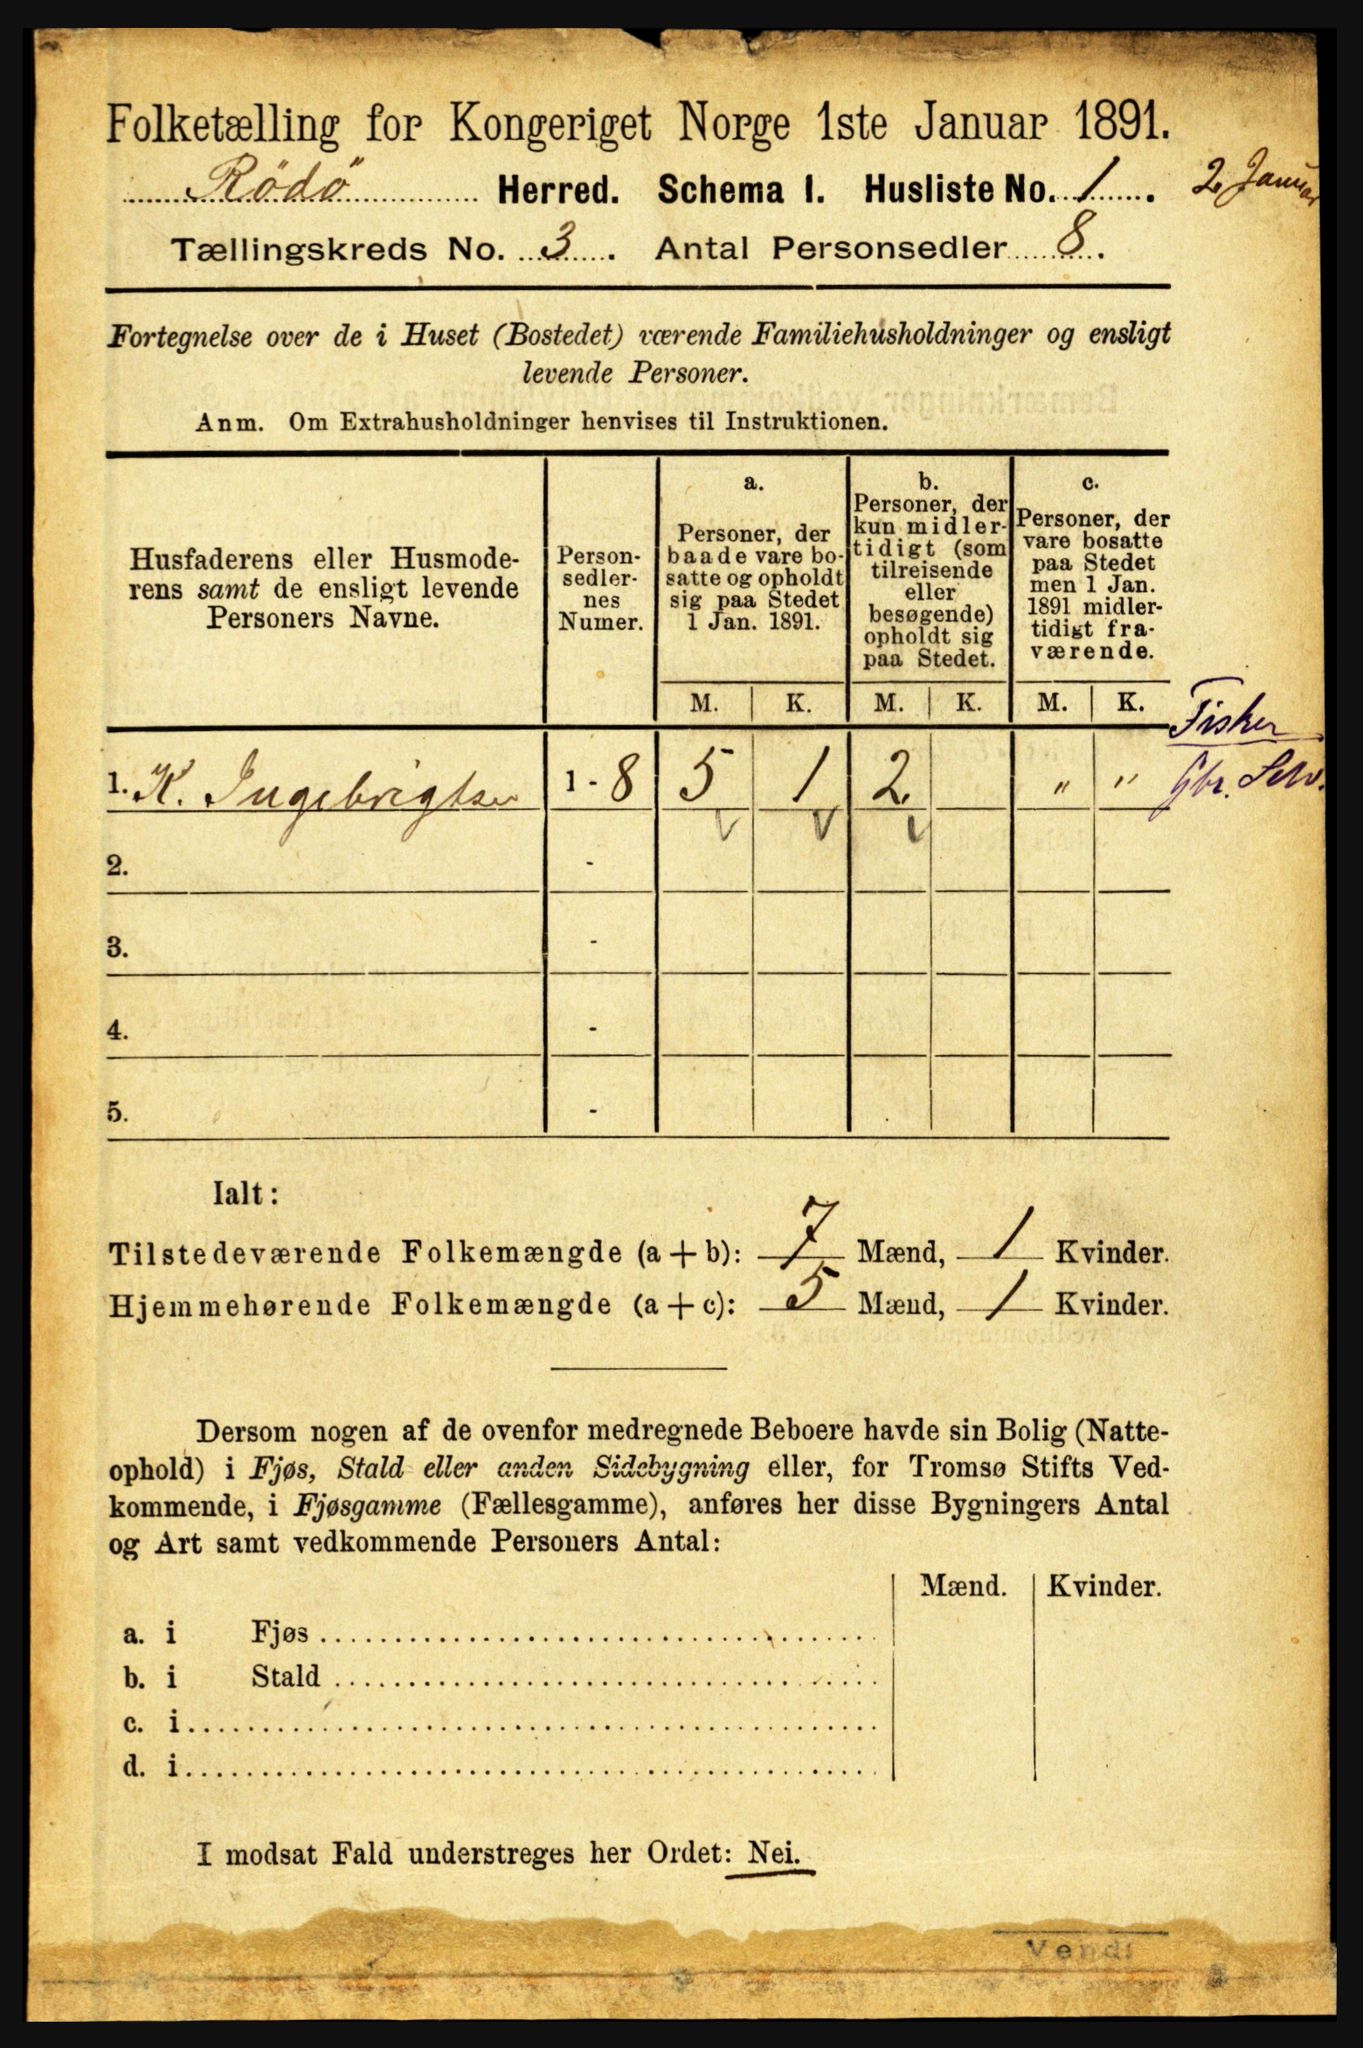 Folketælling for Kongeriget Norge 1ste Januar 1891.
Rödö Herred. Schema I. Husliste No. 1. 2. Januar
Tællingskreds No. 3. Antal Personsedler 8.
Fortegnelse over de i Huset (Bostedet) værende Familiehusholdninger og ensligt
levende Personer.
Anm. Om Extrahusholdninger henvises til Instruktionen.
Husfaderens eller Husmode-
rens samt de ensligt levende
Personers Navne.
Person-
sedler-
nes
Numer.
a.
Personer, der
baade vare bo-
satte og opholdt
sig paa Stedet
1 Jan. 1891.
b.
Personer, der
kun midler-
tidigt (som
tilreisende
eller
besøgende)
opholdt sig
paa Stedet.
c.
Personer, der
vare bosatte
paa Stedet
men 1 Jan.
1891 midler-
tidigt fra-
værende.
M. K. M. K. M. K.
Fisker
1. K. Ingebrigtsen 1 - 8 5 1 2 " " Gbr. Selv.
2. -
3. -
4. -
5. -
Ialt:
Tilstedeværende Folkemængde (a + b): 7 Mænd, 1 Kvinder.
Hjemmehørende Folkemængde (a + c): 5 Mænd, 1 Kvinder.
Dersom nogen af de ovenfor medregnede Beboere havde sin Bolig (Natte-
ophold) i Fjøs, Stald eller anden Sidebygning eller, for Tromsø Stifts Ved-
kommende, i Fjøsgamme (Fællesgamme), anføres her disse Bygningers Antal
og Art samt vedkommende Personers Antal:
Mænd. Kvinder.
a. i Fjøs
b. i Stald
c. i
d. i
I modsat Fald understreges her Ordet: Nei.
Vend!